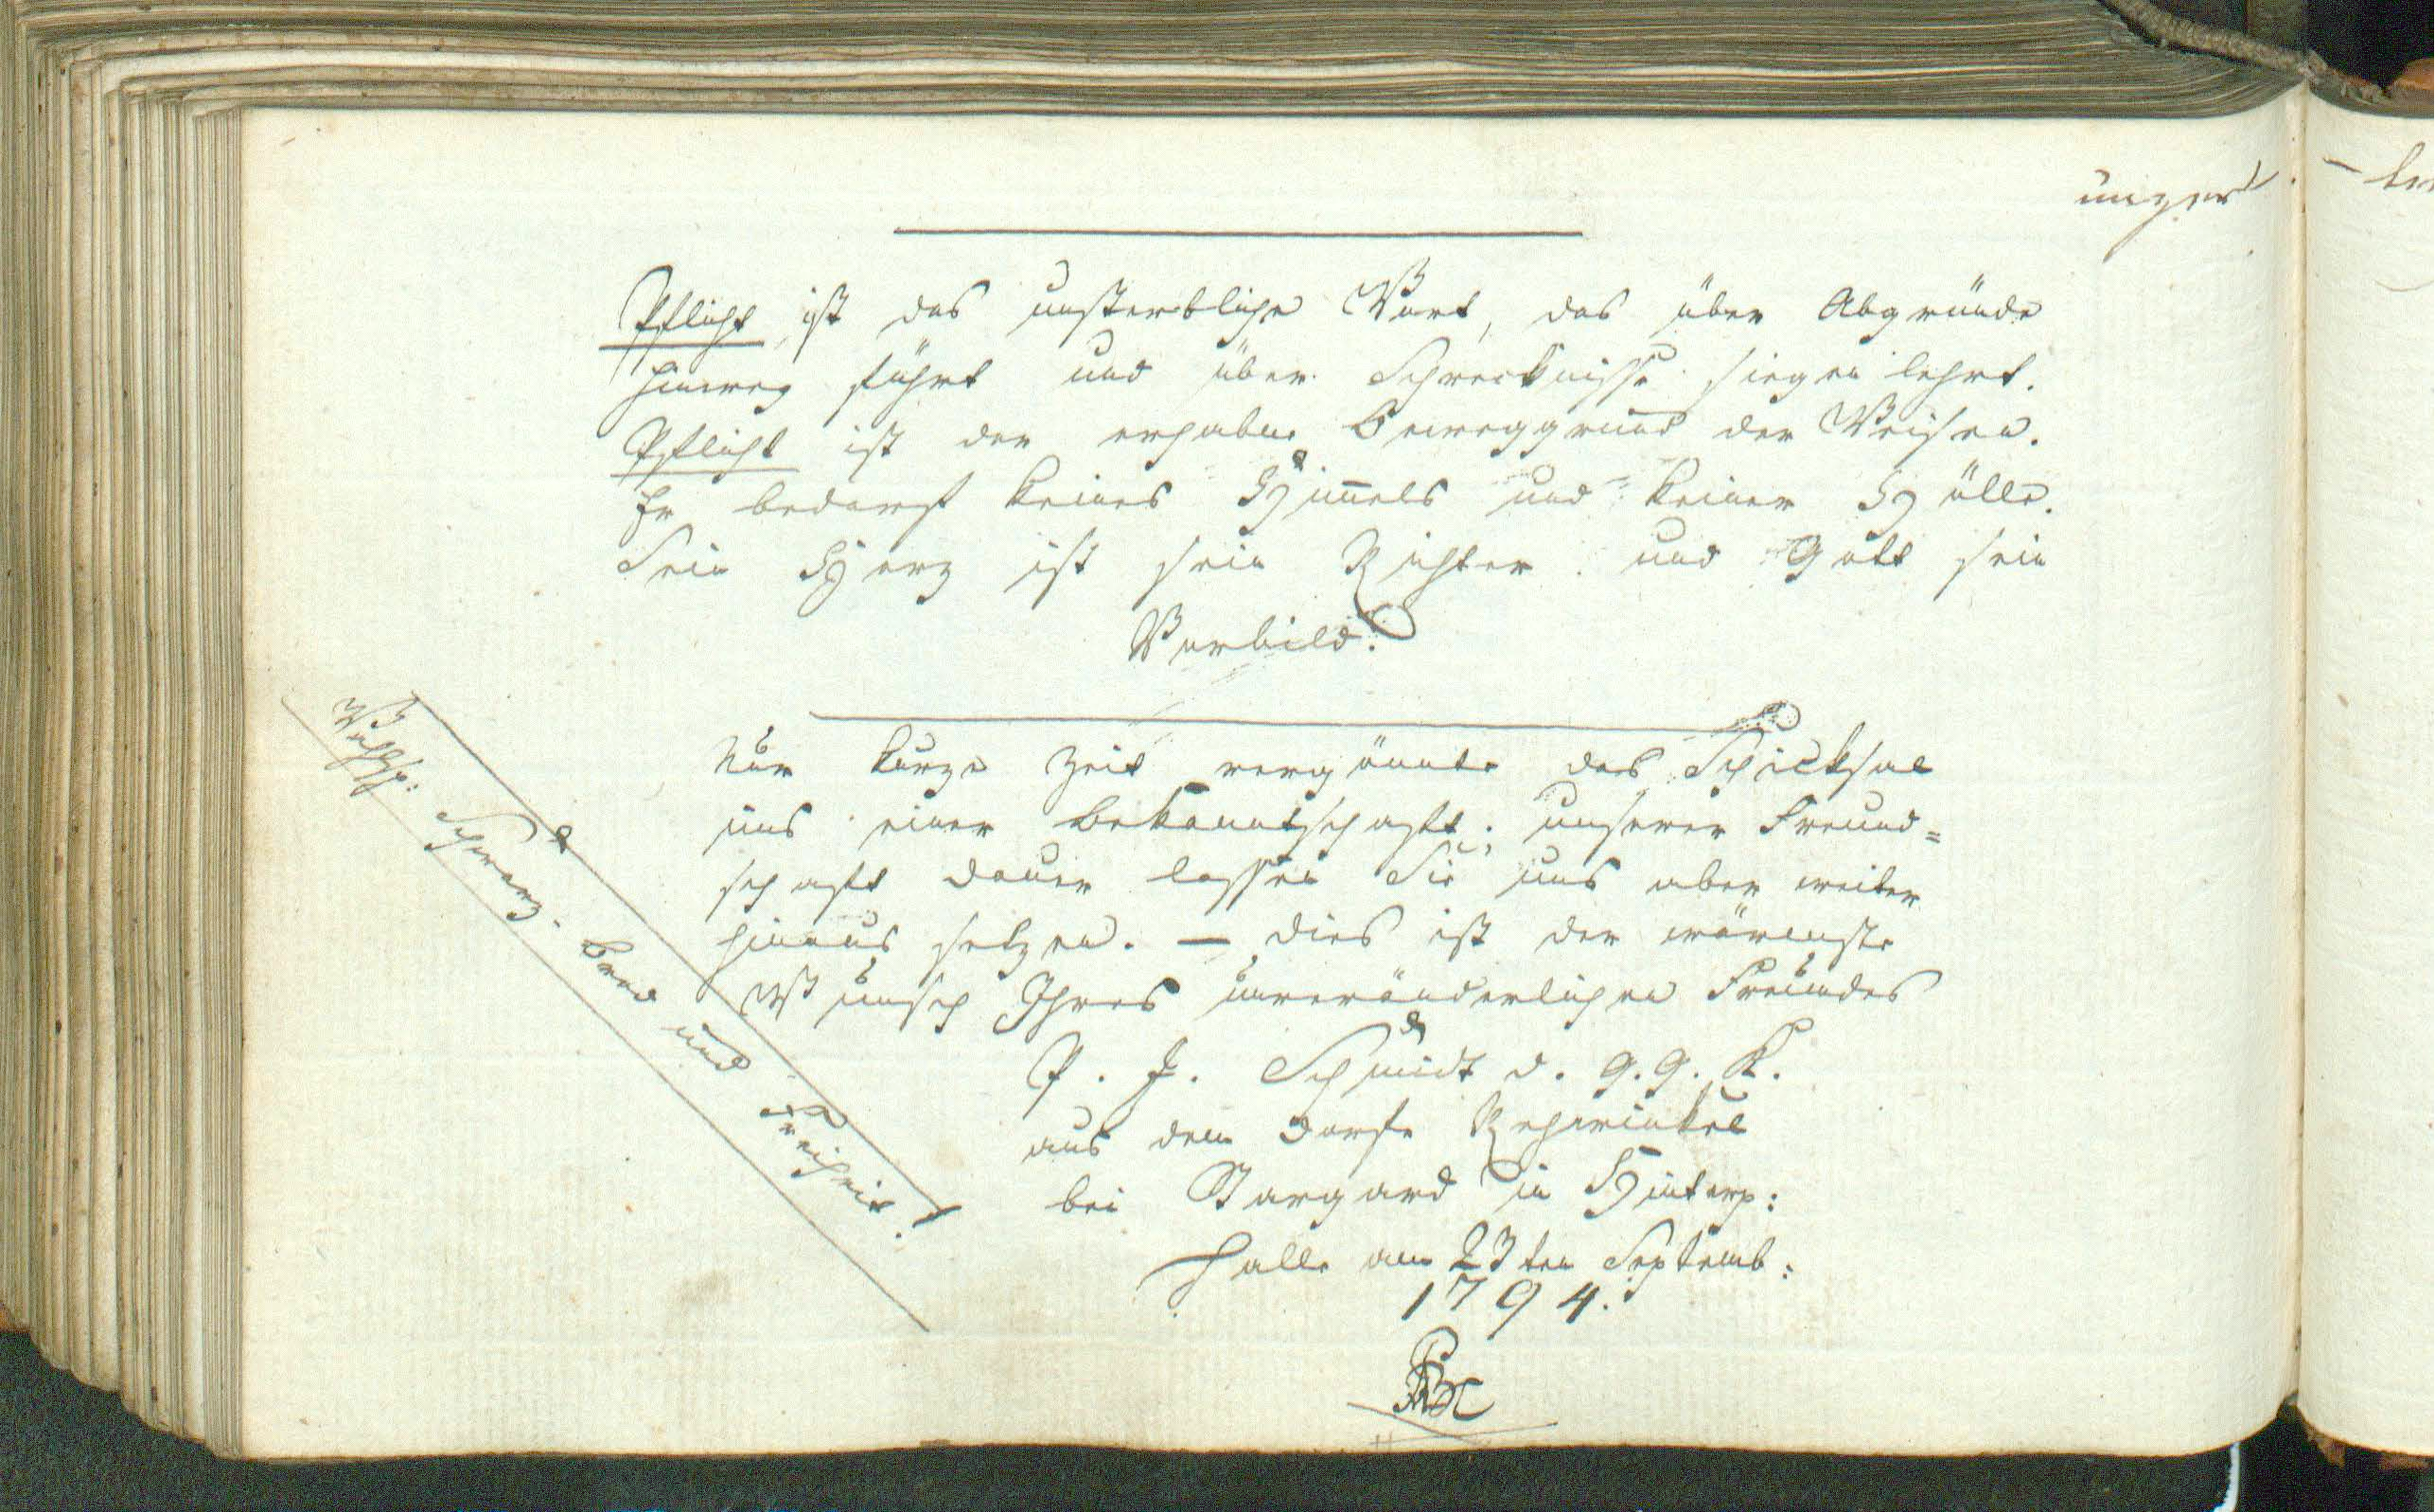 unger
Pflicht ist das unsterbliche Wort, das über Abgründe
hinweg führt und über Schrecknisse siegen lehrt.
Pflicht ist der erhabne Beweggrund der Weisen.
Er bedarf keines Himmels und keiner Hölle.
Sein Herz ist sein Richter und Gott sein
Vorbild.
Nur kurze Zeit vergönnte das Schicksal
uns einer Bekanntschaft; unserer Freund=
schaft Dauer lassen Sie uns aber weiter
hinaus setzen. — Dies ist der wärmste
Wunsch Ihres unveränderlichen Freundes
P. J. Schmidt d. G. G. K.
aus dem Dorfe Rehwinkel
bei Stargard in Hinterp:
Halle am 23ten Septemb:
1794.
Wahlsp: Schwarz. Brod und Freiheit!